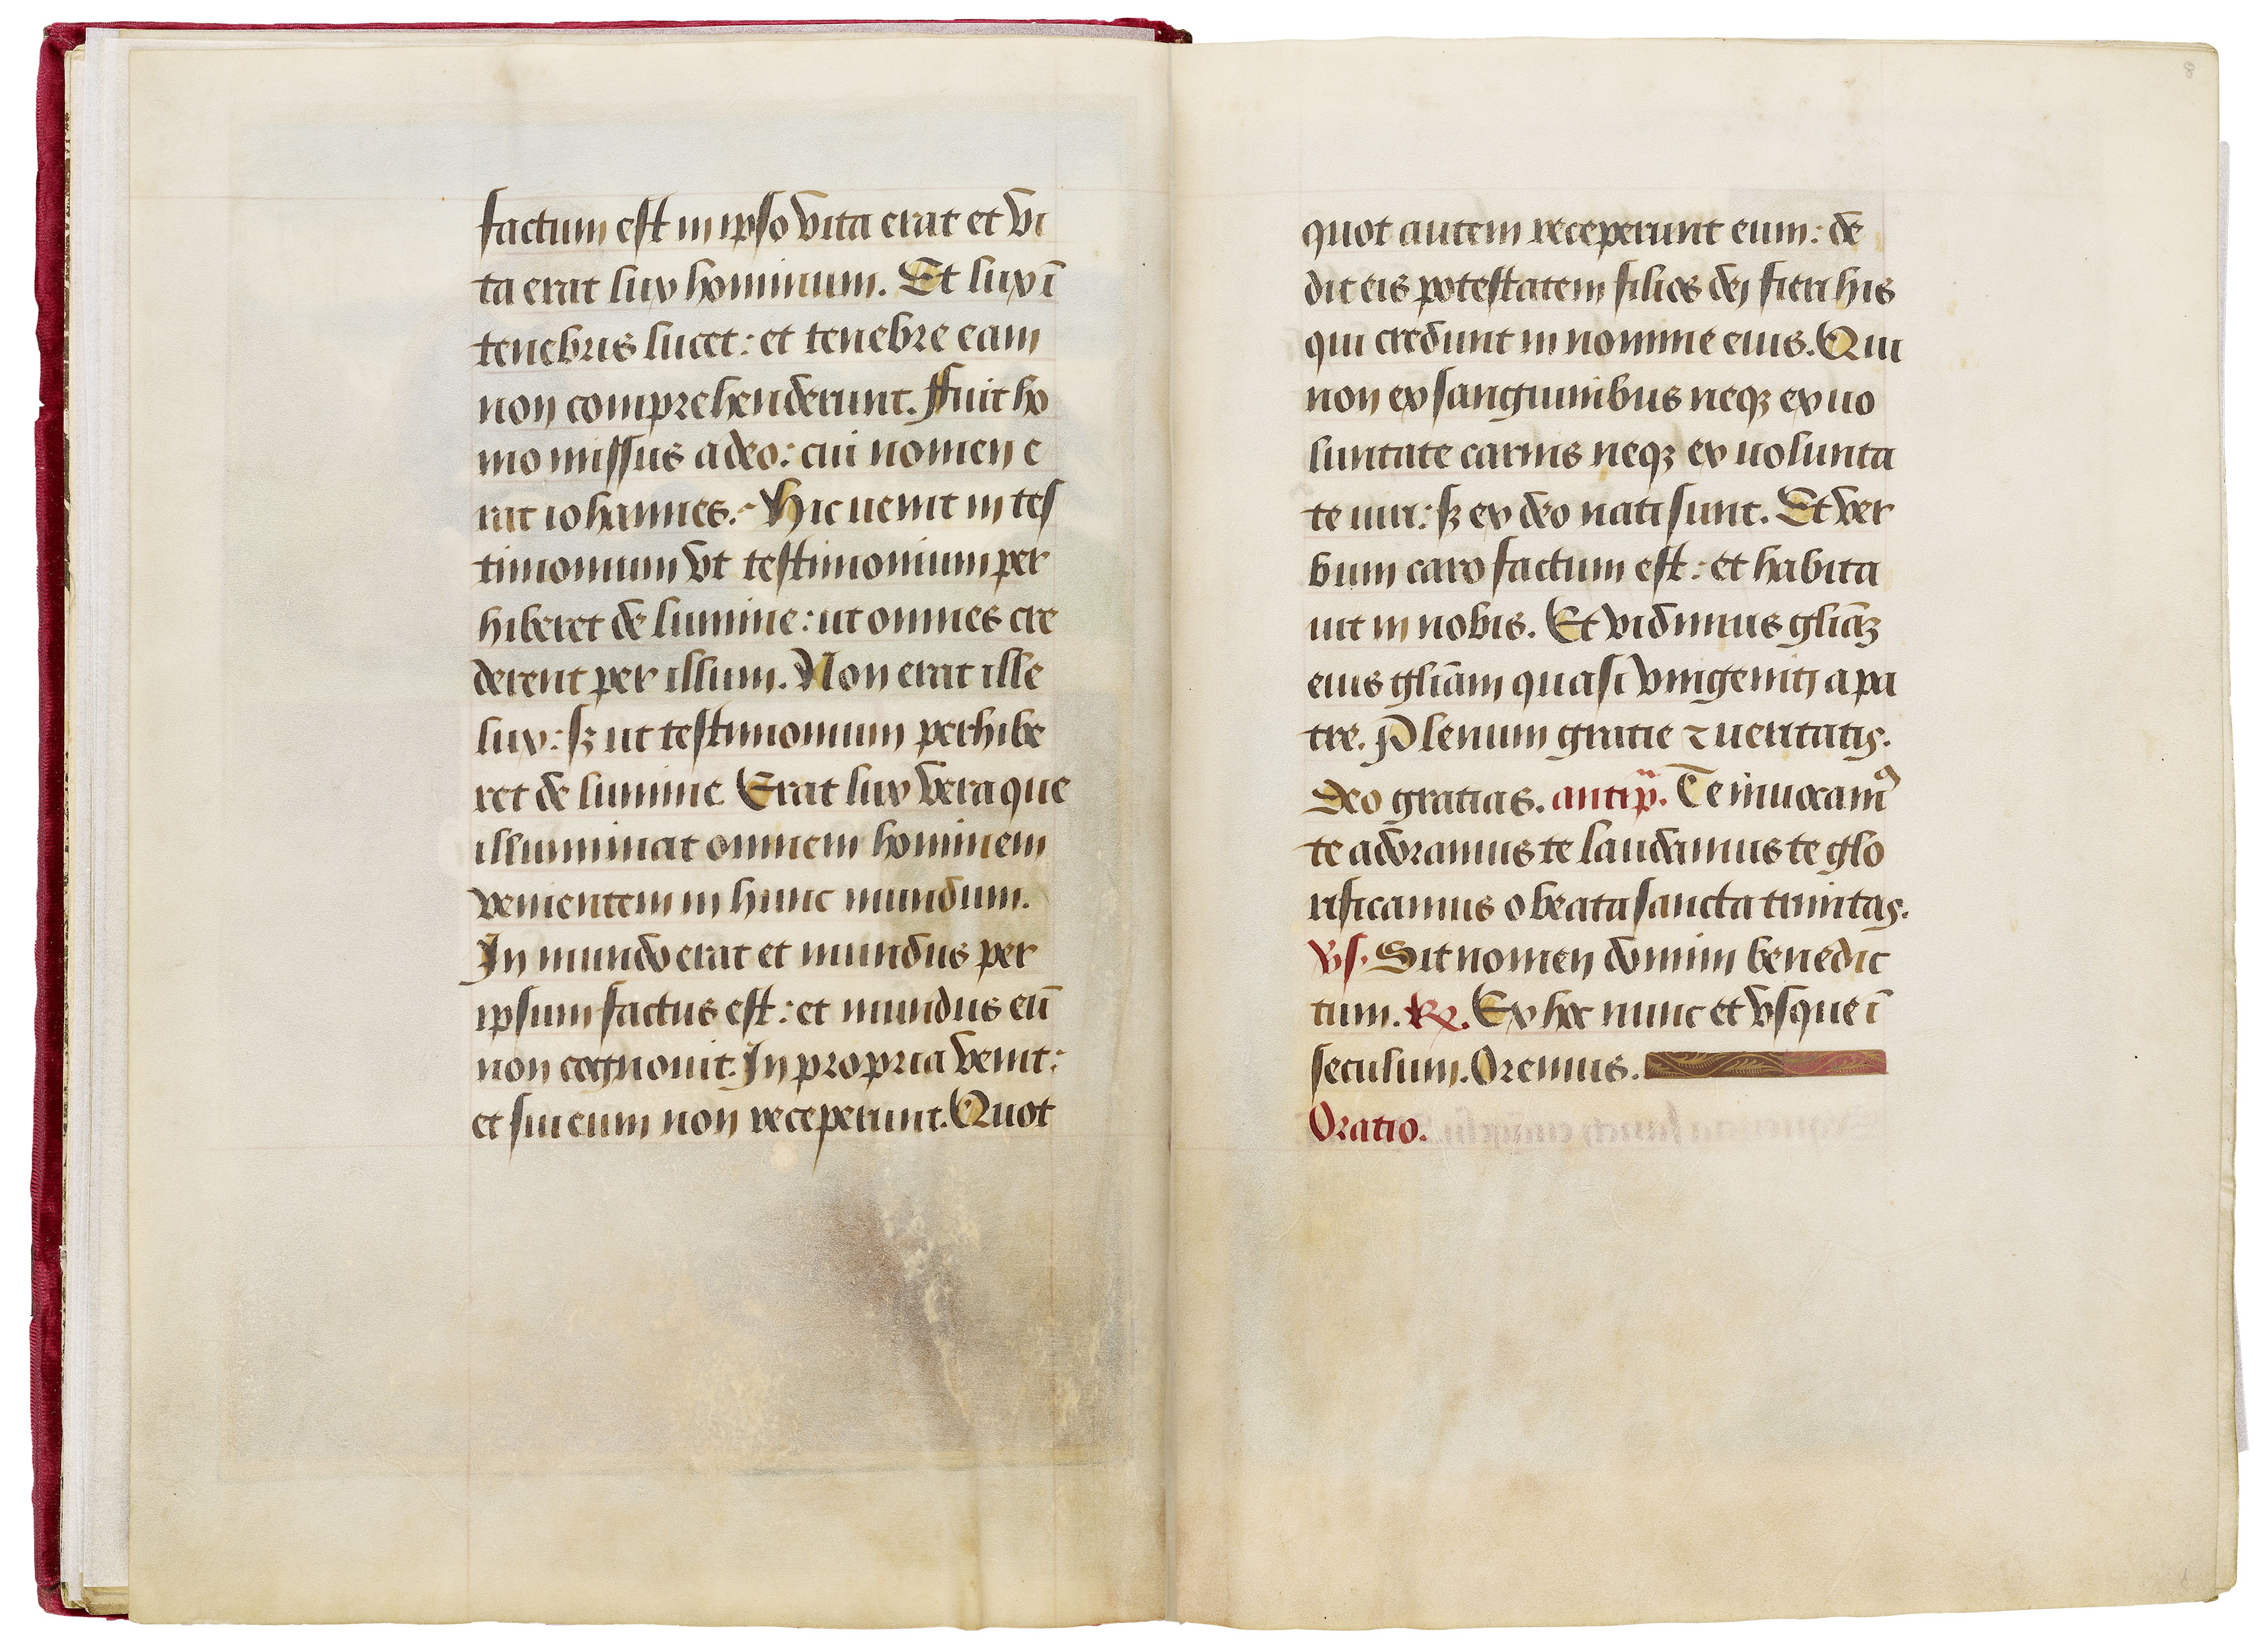 factum est in ipso vita erat et vi
ta erat lux hominum. Et lux ī
tenebris lucet: et tenebre eam
non comprehenderunt. Ffuit ho
mo missus a deo: cui nomen e
rat iohannes. Hic uenit in tes
timonium vt testimonium per
hiberet de lumine: ut omnes cre
derent per illum. Non erat ille
lux: sꝫ ut testimonium perhibe
ret de lumine Erat lux vera que
illuminat omnem hominem
venientem in hunc mundum.
In mundo erat et mundus per
ipsum factus est: et mundus eū
non cognouit. In propria venit:
et sui eum non receperunt. Quot
8
quot autem receperunt eum: de
dit eis potestatem filios dej fieri his
qui credunt in nomine eius. Qui
non ex sanguinibus neqꝫ ex uo
luntate carnis neqꝫ ex uolunta
te uiri: sꝫ ex deo nati sunt. Et ver
bum caro factum est: et habita
uit in nobis. Et vidimus gliāꝫ
eius gliām quasi vnigenitj a pa
tre. Plenum gratie ⁊ ueritatis.
Deo gratias. antip̄. Te inuocamꝰ
te adoramus te laudamus te glo
rificamus o beata sancta trinitas.
vs. Sit nomen domini benedic
tum. ℟. Ex hoc nunc et vsque ī
seculum. Oremus.
Oratio.